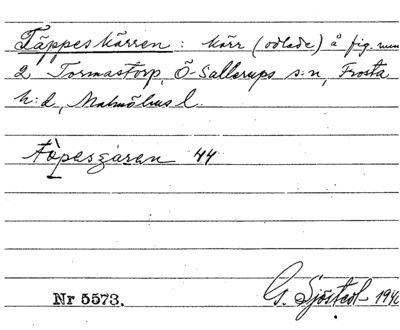 Täppeskärren: kärr (odlade) å fig. num
2 Tormastorp, Ö-Sallerups s:n, Frosta
h:d, Malmöhus l.
44
Nr 5573.
G. Sjöstedt 1940